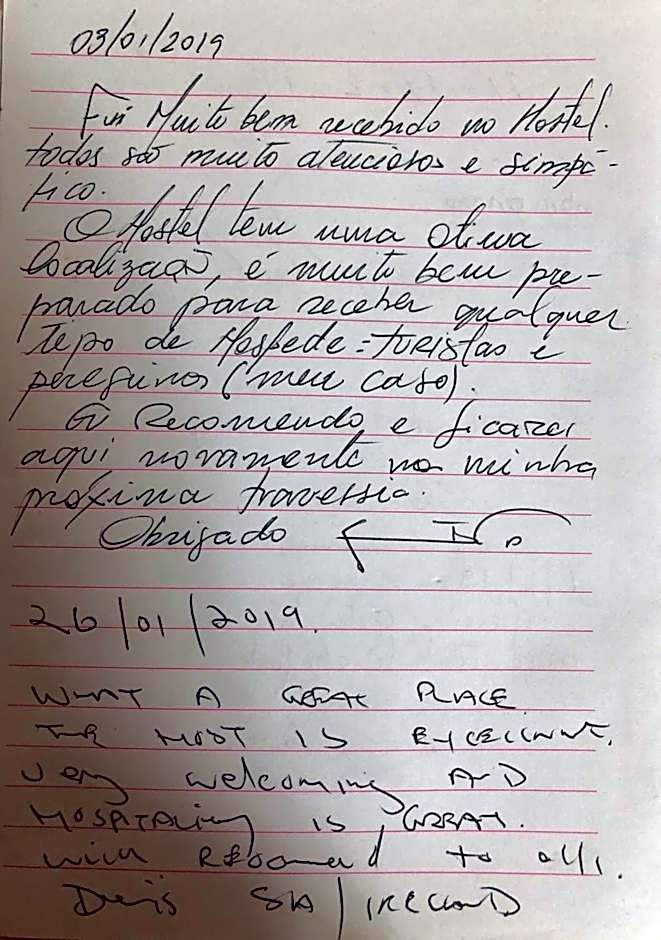 03/01/2019
Fui Muito bem recebido no Hostel.
todos são muito atenciosos e simpá-
tico.
O Hostel tem uma otima
localização, é muito bem pre-
parado para receber qualquer
tipo de Hospede: turistas e
peregrinos (meu caso).
Eu Recomendo e ficarei
aqui novamente na minha
próxima travessia.
Obrigado
26/01/2019.
WHAT A GREAT PLACE
THE HOST IS EXCELLENT.
very welcoming AND
HOSPITALITY IS GREAT.
will Recommend to all.
SA/IRELAND